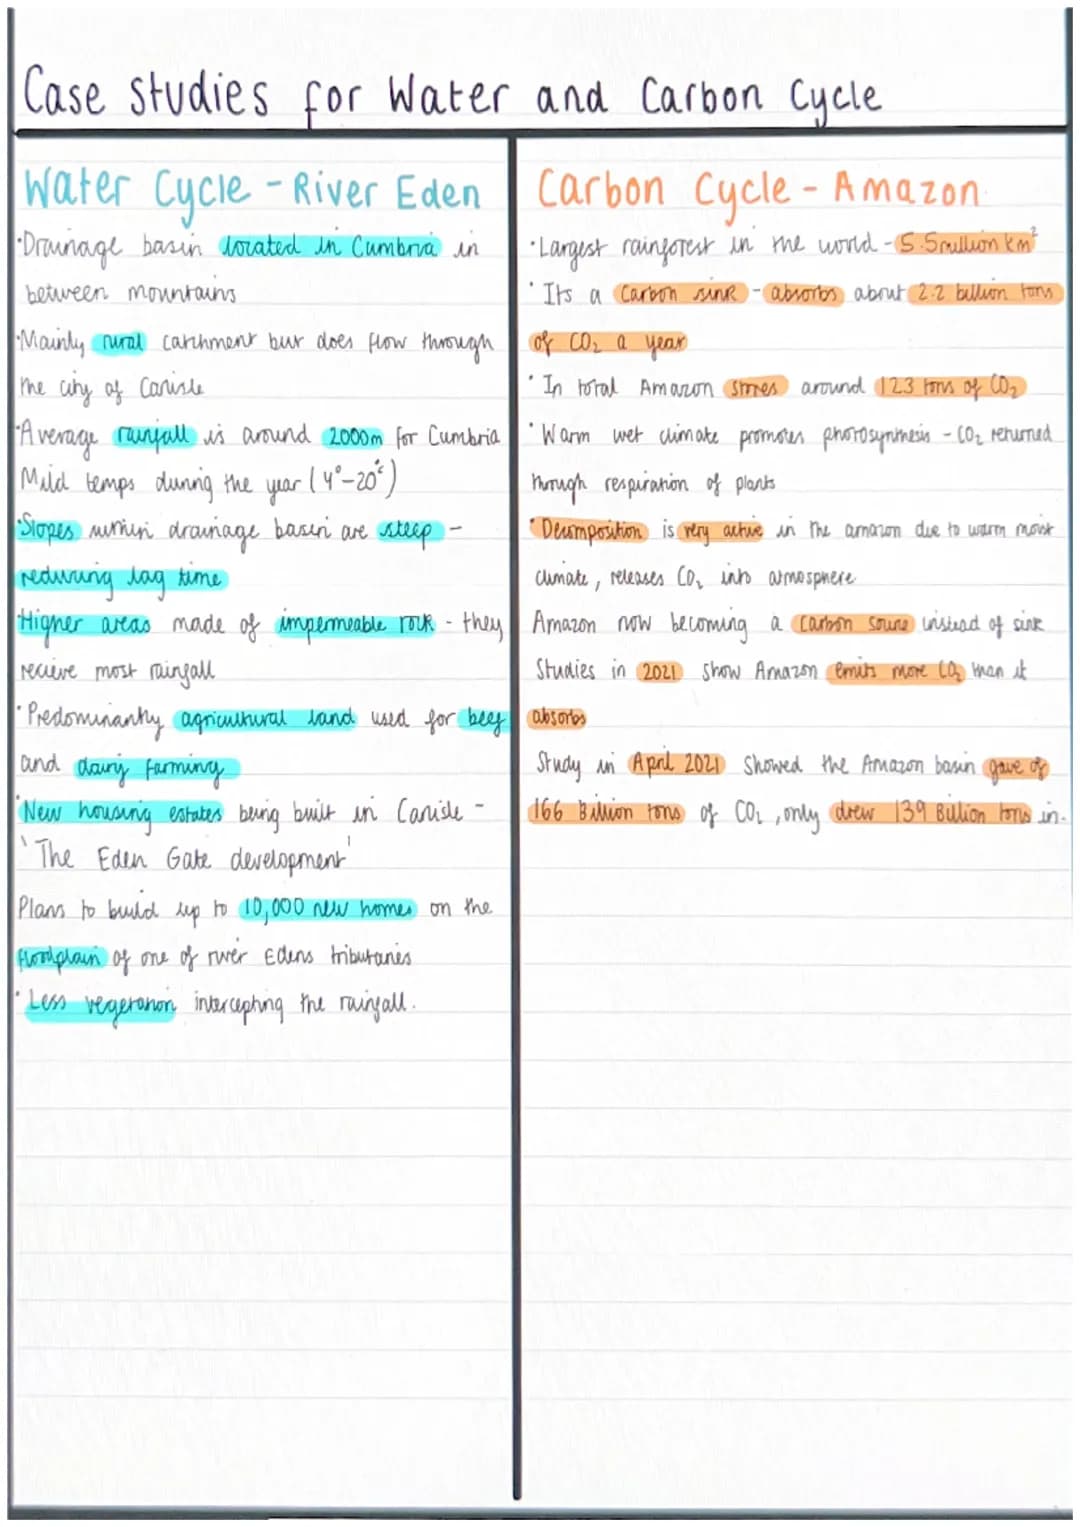 Case studies for Water and Carbon Cycle
Water Cycle - River Eden
·Drainage basin located in Cumbria in
between mountains
·Mainly rural catchment but does flow through
the city of Carlisle
·Average rainfall is around 2000m for Cumbria
Mild temps during the year (4°-20°c)
·Slopes within drainage basin are steep -
reducing lag time
·Higher areas made of impermeable rock - they
recieve most rainfall
·Predominantly agricultural land used for beef
and dairy farming
·New housing estates being built in Carlisle -
'The Eden Gate development'
Plans to build up to 10,000 new homes on the
floodplain of one of river Edens tributaries
·Less vegetation intercepting the rainfall.
Carbon Cycle - Amazon
·Largest rainforest in the world - 5.5million km²
·Its a Carbon sink - absorbs about 2.2 billion tons
of CO₂ a year
·In total Amazon stores around 123 tons of CO₂
·Warm wet climate promotes photosynthesis - CO₂ returned
through respiration of plants
·Decomposition is very active in the amazon due to warm moist
climate, releases CO₂ into atmosphere
Amazon now becoming a carbon source instead of sink
Studies in 2021 show Amazon emits more CO₂ than it
absorbs
Study in April 2021 showed the Amazon basin gave of
166 Billion tons of CO₂, only drew 139 Billion tons in.